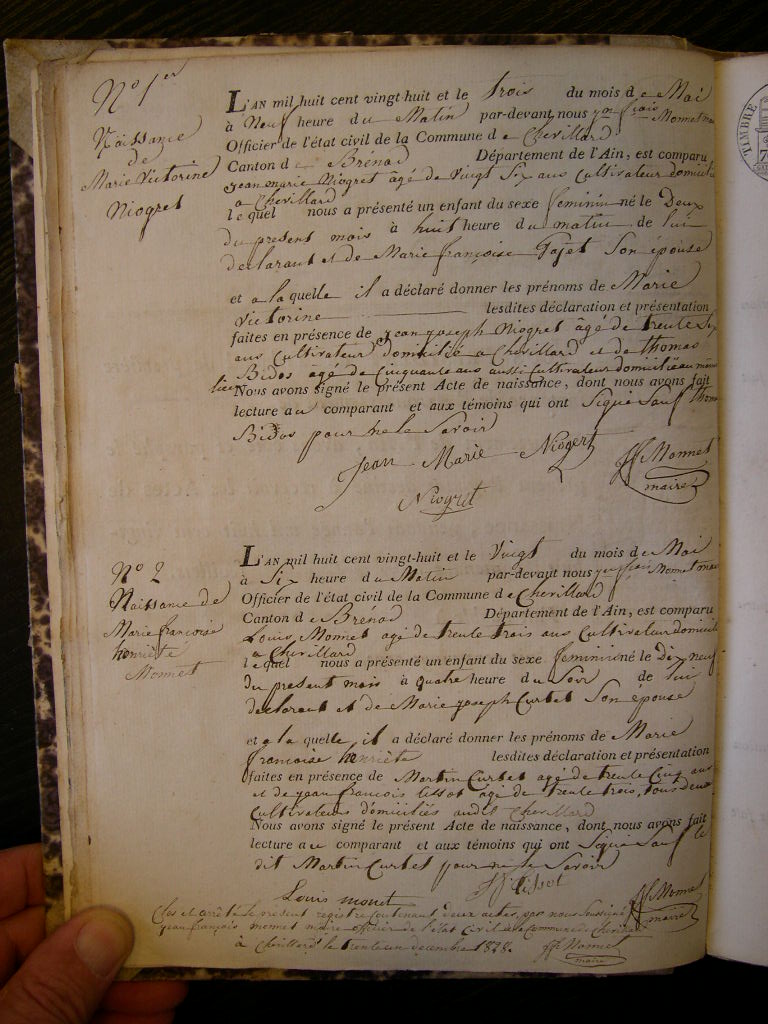 N° 1er
Naissance
de
Marie Victorine
Niogret
L'AN mil huit cent vingt-huit et le trois du mois de Mai
à Neuf heure du Matin par-devant nous jean françois Monnet maire
Officier de l'état civil de la Commune de Chevillard
Canton de Brénod Département de l'Ain, est comparu
jean marie Niogret âgé de vingt Six ans Cultivateur domicilié
a Chevillard
lequel nous a présenté un enfant du sexe feminin né le Deux
du present mois à huit heure du matin de lui
declarant et de Marie françoise Son épouse
et a laquelle il a déclaré donner les prénoms de Marie
Victorine lesdites déclaration et présentation
faites en présence de jean joseph Niogret âgé de trente Six
ans Cultivateur domicilié a Chevillard et de thomas
Bidos âgé de Cinquante ans aussi Cultivateur domicilié au même
lieu Nous avons signé le présent Acte de naissance, dont nous avons fait
lecture au comparant et aux témoins qui ont Signé Sauf thomas
Bidos pour ne le Savoir
Jean Marie Niogert
JF Monnet
maire
Niogret
N° 2
Naissance de
Marie françoise
henriète
Monnet
L'AN mil huit cent vingt-huit et le Vingt du mois de Mai
à Six heure du Matin par-devant nous jean françois Monnet maire
Officier de l'état civil de la Commune de Chevillard
Canton de Brenod Département de l'Ain, est comparu
Louis Monnet agé de trente trois ans Cultivateur domicilié
a Chevillard
lequel nous a présenté un enfant du sexe feminin né le Dix neuf
du present mois à quatre heure du Soir de lui
declarant et de Marie joseph Curtet Son épouse
et a la quelle il a déclaré donner les prénoms de Marie
francoise henriète lesdites déclaration et présentation
faites en présence de Martin Curtet agé de trente Cinq ans
et de jean francois tissot âgé de trente trois, tous deux
Cultivateurs domiciliés audit Chevillard
Nous avons signé le présent Acte de naissance, dont nous avons fait
lecture au comparant et aux témoins qui ont Signé Sauf le
dit Martin Curtet pour ne le Savoir
Louis monet
tissot
JF Monnet
maire
Clos et arrêté le présent registre contenant deux actes, par nous Soussigné
jean françois monnet maire officier de l'Etat Civil de la Commune de Chevillard
à Chevillard le trente un decembre 1828.
JF Monnet
maire
TIMBRE
7